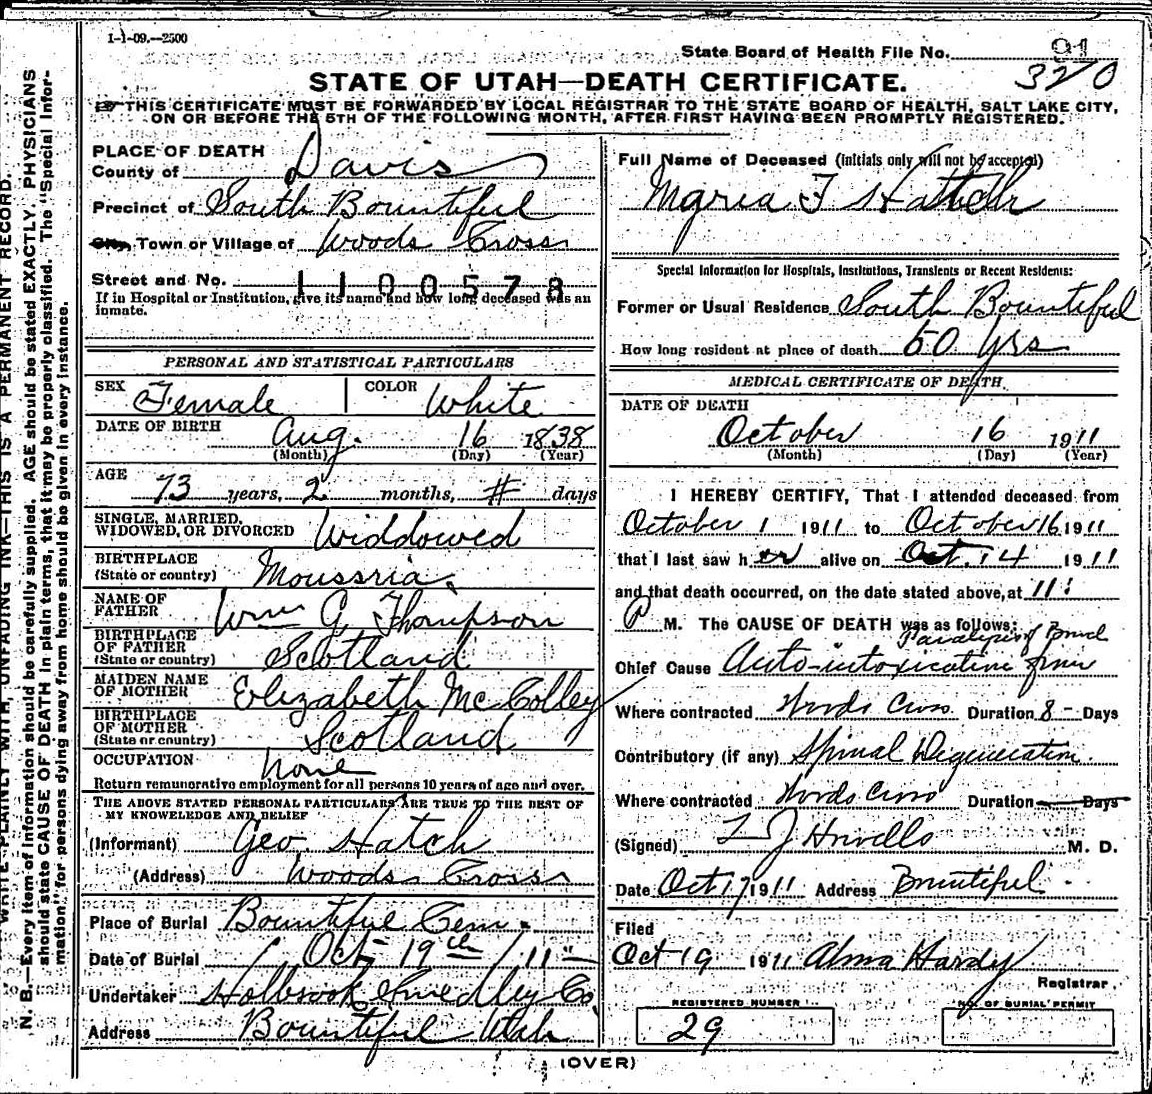 1-1-09.—2500
State Board of Health File No. 91
3210
STATE OF UTAH—DEATH CERTIFICATE.
THIS CERTIFICATE MUST BE FORWARDED BY LOCAL REGISTRAR TO THE STATE BOARD OF HEALTH, SALT LAKE CITY,
ON OR BEFORE THE 5TH OF THE FOLLOWING MONTH, AFTER FIRST HAVING BEEN PROMPTLY REGISTERED.
N. B.—Every item of information should be carefully supplied. AGE should be stated EXACTLY. PHYSICIANS
should state CAUSE OF DEATH in plain terms, that it may be properly classified. The "Special Infor-
mation" for persons dying away from home should be given in every instance.
WRITE PLAINLY WITH UNFADING INK—THIS IS A PERMANENT RECORD.
PLACE OF DEATH
County of Davis
Precinct of South Bountiful
City, Town or Village of Woods Cross
Street and No. 1100578
If in Hospital or Institution, give its name and how long deceased was an
inmate.
PERSONAL AND STATISTICAL PARTICULARS
SEX Female COLOR White
DATE OF BIRTH Aug. 16 1838
(Month) (Day) (Year)
AGE 73 years, 2 months, # days
SINGLE, MARRIED,
WIDOWED, OR DIVORCED Widdowed
BIRTHPLACE
(State or country) Moussria.
NAME OF
FATHER Wm G Thompson
BIRTHPLACE
OF FATHER
(State or country) Scotland
MAIDEN NAME
OF MOTHER Elizabeth McColley
BIRTHPLACE
OF MOTHER
(State or country) Scotland
OCCUPATION none
Return remunerative employment for all persons 10 years of age and over.
THE ABOVE STATED PERSONAL PARTICULARS ARE TRUE TO THE BEST OF
MY KNOWLEDGE AND BELIEF
(Informant) Geo. Hatch
(Address) Woods Cross
Place of Burial Bountiful Cem.
Date of Burial Oct 19th /11
Undertaker Holbrook Smedley Co
Address Bountiful Utah
Full Name of Deceased (initials only will not be accepted)
F Hatch
Special Information for Hospitals, Institutions, Transients or Recent Residents:
Former or Usual Residence South Bountiful
How long resident at place of death 50 yrs
MEDICAL CERTIFICATE OF DEATH
DATE OF DEATH
October 16 1911
(Month) (Day) (Year)
I HEREBY CERTIFY, That I attended deceased from
October 1 1911 to October 16 1911
that I last saw her alive on Oct. 14 1911
and that death occurred, on the date stated above, at 11:
P M. The CAUSE OF DEATH was as follows:
Paralysis of Bowel
Chief Cause Auto-intoxication from
Where contracted Woods Cross. Duration 8 - Days
Contributory (if any) Spinal Degeneration.
Where contracted Woods Cross Duration Days
(Signed) M. D.
Date Oct 17 1911 Address Bountiful
Filed
Oct 19 1911 Alma Hardy
Registrar.
REGISTERED NUMBER
29
NO. OF BURIAL PERMIT
(OVER)